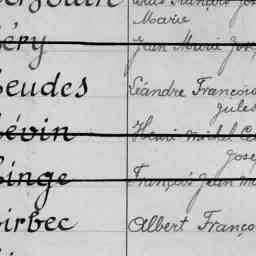 Marie
éry Jean Marie Jos
eudes Léandre François
Jules
évin Henri Michel
Jose
inge François Jean M
irbec Albert Franço